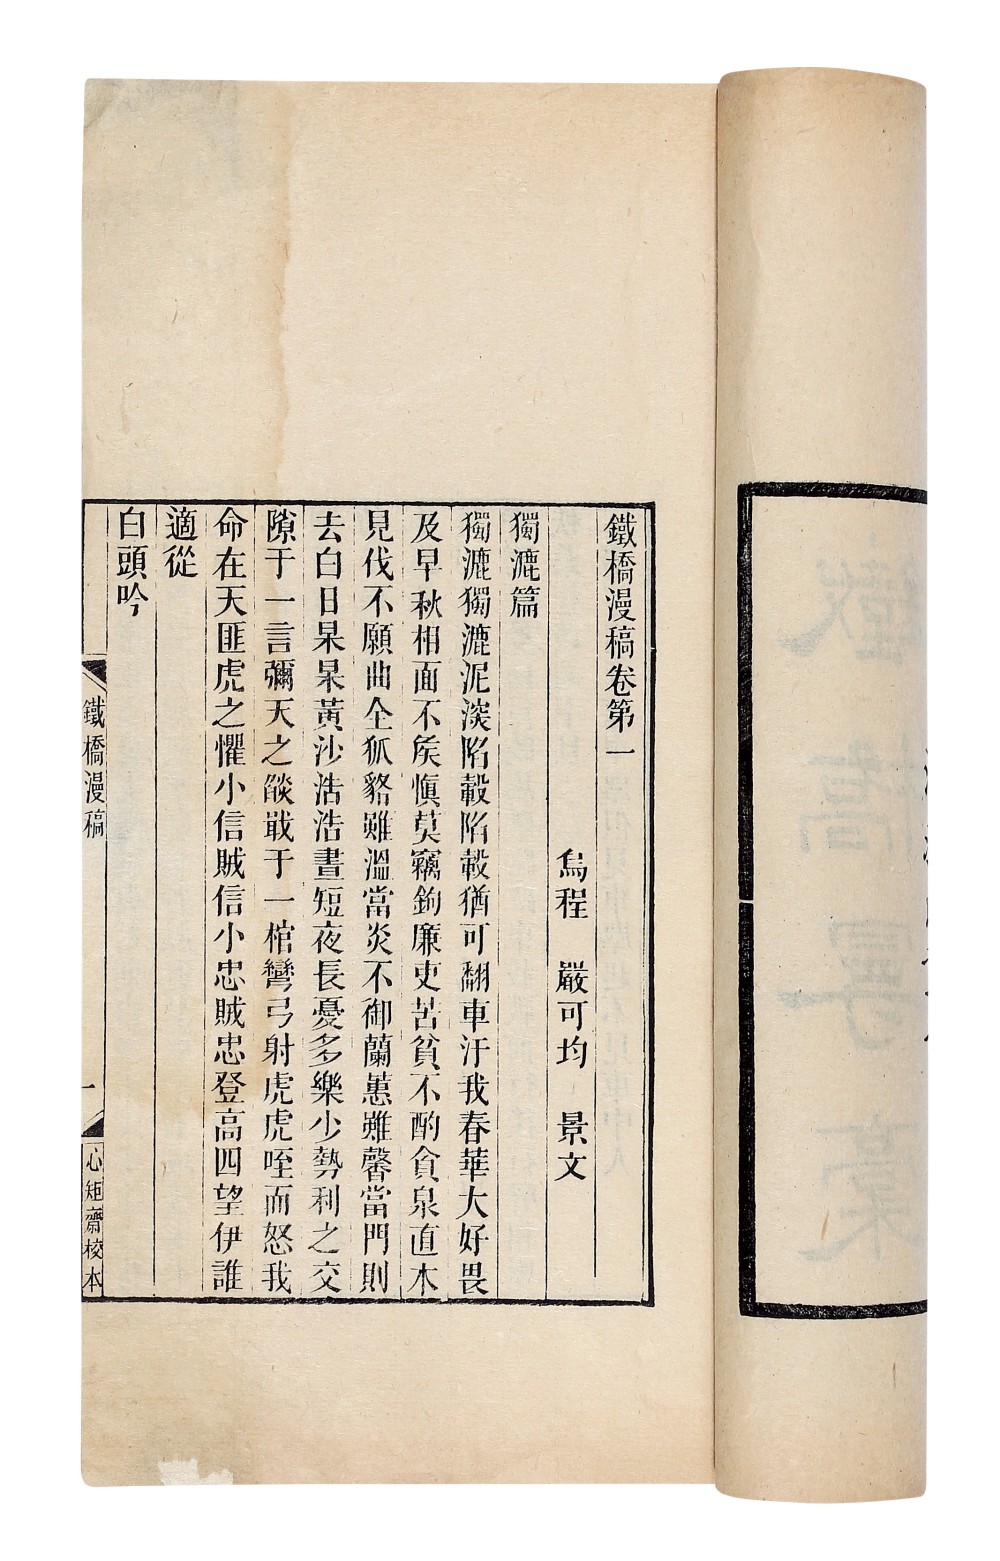 鐵橋漫稿卷第一
烏程　嚴可均　景文
獨漉篇
獨漉獨漉泥淡陷轂陷轂猶可翻車汙我春華大好畏
及早秋相面不矦愼莫竊鉤廉吏苦貧不酌貪泉直木
見伐不願曲全狐貉雖溫當炎不御蘭蕙雖馨當門則
去白日杲杲黃沙浩浩晝短夜長憂多樂少勢利之交
隙于一言彌天之燄戢于一棺彎弓射虎虎咥而怒我
命在天匪虎之懼小信賊信小忠賊忠登高四望伊誰
適從
白頭吟
鐵橋漫稿
一
心矩齋校本